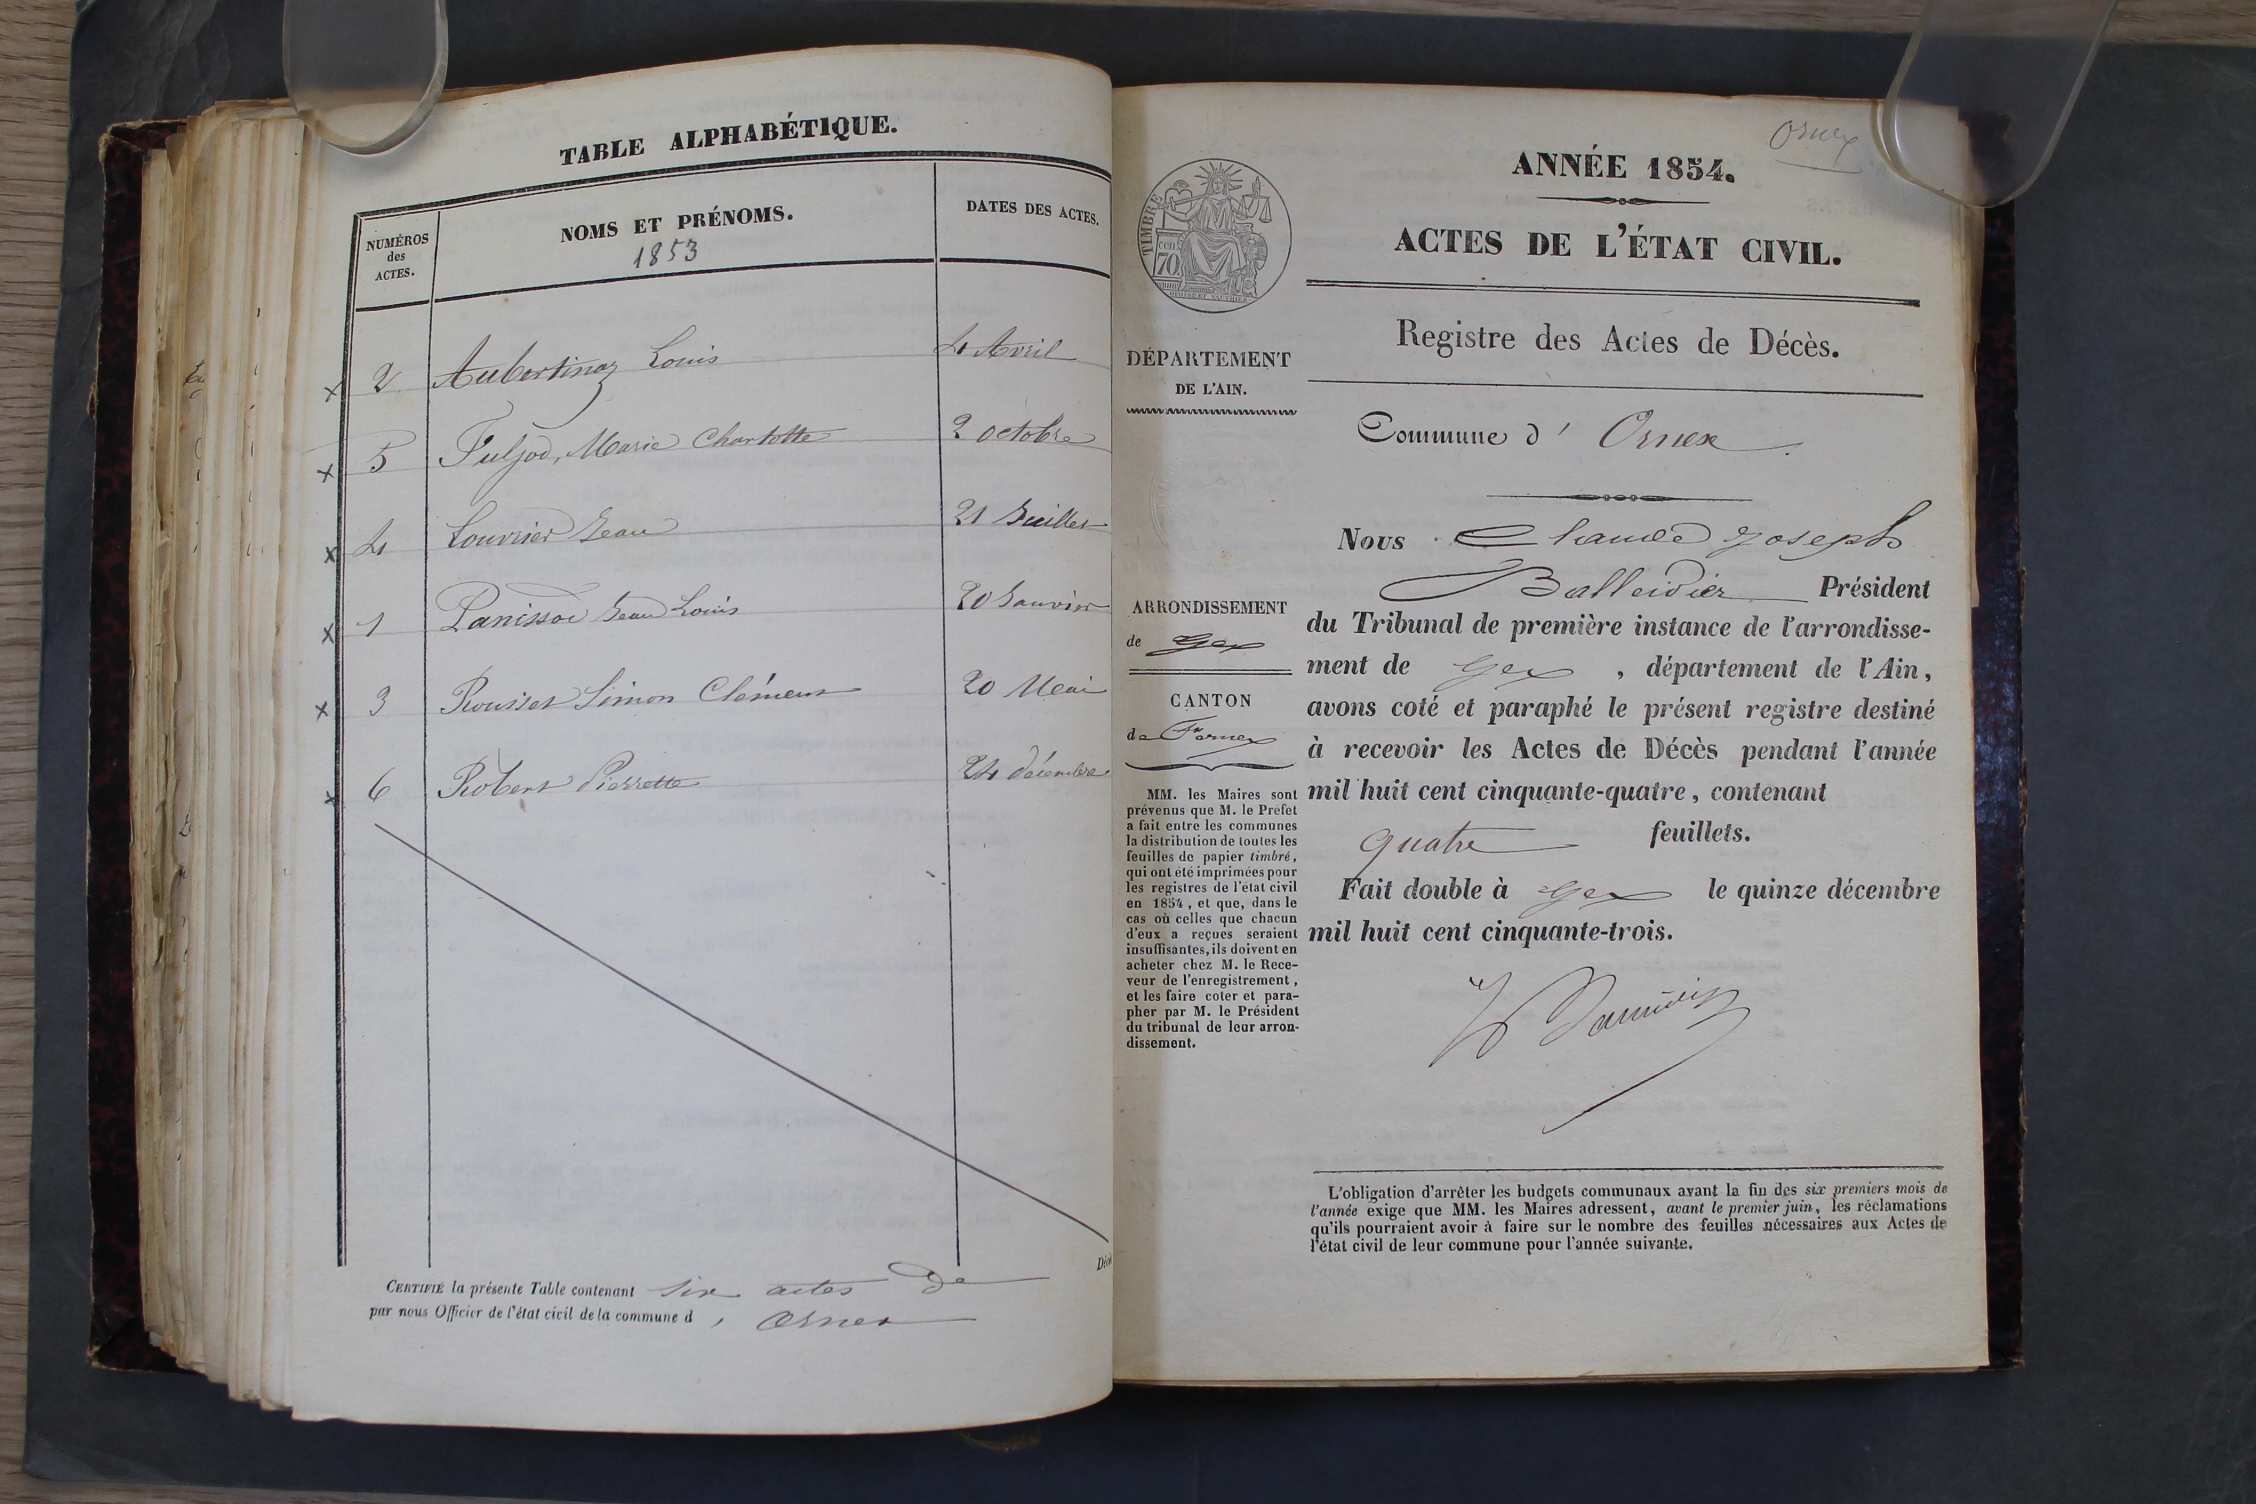 TABLE ALPHABÉTIQUE.
NUMÉROS des ACTES.
NOMS ET PRÉNOMS.
1853
DATES DES ACTES.
x 2 Aubertinaz Louis 4 Avril
x 5 Fuljod, Marie Charlotte 2 octobre
x 4 Louvrier Jean 21 Juillet
x 1 Panissod Jean Louis 20 Janvier
x 3 Rousset Simon Clément 20 Mai
x 6 Robert Pierrette 24 décembre
CERTIFIÉ la présente Table contenant six actes de
par nous Officier de l'état civil de la commune d' Ornex
Ornex
ANNÉE 1854.
ACTES DE L'ÉTAT CIVIL.
Registre des Actes de Décès.
TIMBRE
70
DÉPARTEMENT
DE L'AIN.
ARRONDISSEMENT
de Gex
CANTON
de Ferney
MM. les Maires sont
prévenus que M. le Préfet
a fait entre les communes
la distribution de toutes les
feuilles de papier timbré,
qui ont été imprimées pour
les registres de l'état civil
en 1854, et que, dans le
cas où celles que chacun
d'eux a reçues seraient
insuffisantes, ils doivent en
acheter chez M. le Rece-
veur de l'enregistrement,
et les faire coter et para-
pher par M. le Président
du tribunal de leur arron-
dissement.
Commune d' Ornex
Nous Claude Joseph
Balleidier Président
du Tribunal de première instance de l'arrondisse-
ment de Gex, département de l'Ain,
avons coté et paraphé le présent registre destiné
à recevoir les Actes de Décès pendant l'année
mil huit cent cinquante-quatre, contenant
quatre feuillets.
Fait double à Gex le quinze décembre
mil huit cent cinquante-trois.
L'obligation d'arrêter les budgets communaux avant la fin des six premiers mois de
l'année exige que MM. les Maires adressent, avant le premier juin, les réclamations
qu'ils pourraient avoir à faire sur le nombre des feuilles nécessaires aux Actes de
l'état civil de leur commune pour l'année suivante.